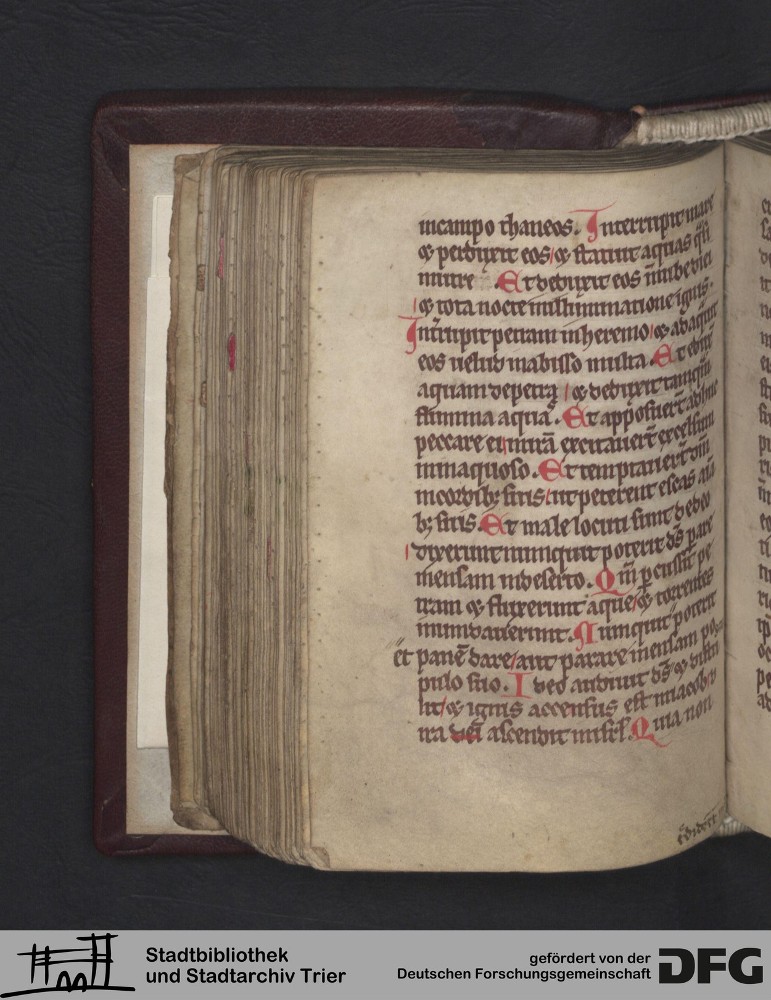 incampo thaneos. Interrupit mare
⁊ perduxit eos ⁊ statuit aquas q̃si
inutre. Et deduxit eos ĩ nube diei
⁊ tota nocte inilluminatione ignis.
Inťrupit petram inheremo ⁊ adaquit
eos uelud inabisso multa. Et eduxit
aquam de petra ⁊ deduxit tamq̃m
flumina aquã. Et apposuerẽt adhuc
peccare ei inirã excitauerẽt excelsum
ininaquoso. Et temptauerẽt dm̃
incordibꝫ suis ut peterent escas aĩa
bꝫ suis. Et male locuti sunt de deo
dixerunt nunquit poterit ds̃ ꝑare
mensam indeserto. Qm̃ ꝑcussit pe
tram ⁊ fluxerunt aque ⁊ torrentes
inundauerunt. Nunquit ⁊ poterit
et panẽ dare aut parare mensam po
pulo suo. Ideo audiuit ds̃ ⁊ distu
lit ⁊ ignis accensus est iniacob ⁊
ira dei ascendit inisrl̃. Quia non
Stadtbibliothek
und Stadtarchiv Trier
gefördert von der
Deutschen Forschungsgemeinschaft
DFG